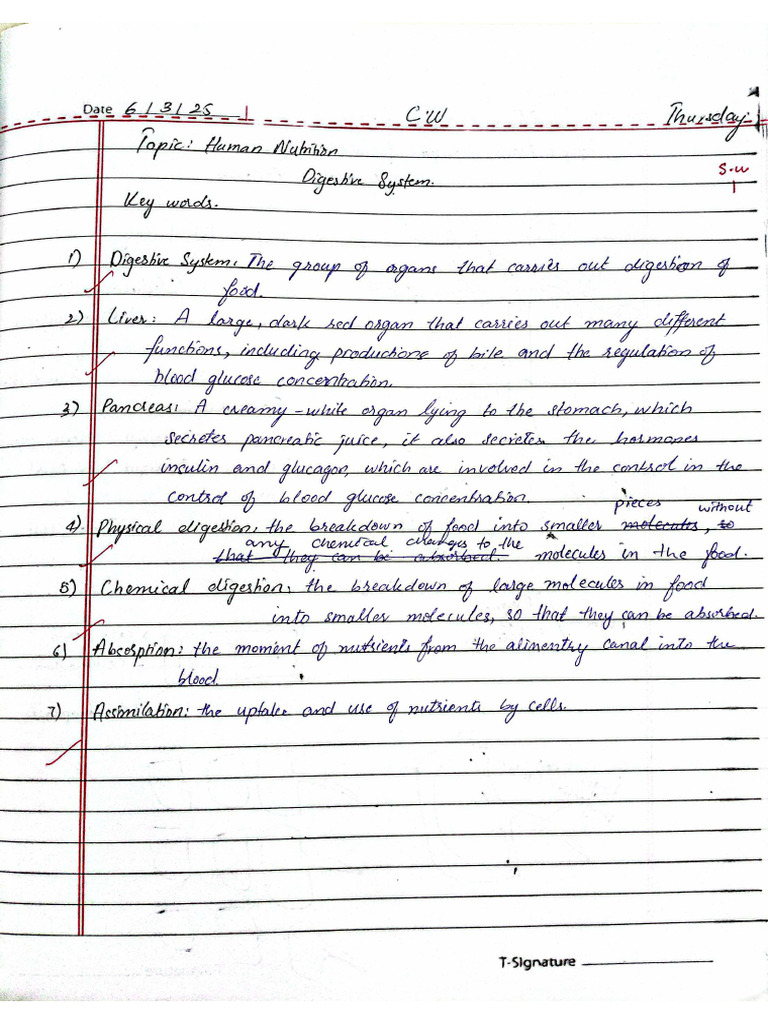 Date 6/3/25 C.W Thursday
Topic: Human Nutrition
Digestive System.
S.w
1
Key words.
1) Digestive System: The group of organs that carries out digestion of
food.
2) Liver: A large, dark red organ that carries out many different
functions, including productions of bile and the regulation of
blood glucose concentration.
3) Pancreas: A creamy-white organ lying to the stomach, which
secretes pancreatic juice, it also secretes the hormones
inculin and glucagon, which are involved in the control in the
control of blood glucose concentration.
pieces without
4) Physical digestion: the breakdown of food into smaller molecules, to
any chemical changes to the
that they can be absorbed. molecules in the food.
5) Chemical digestion: the breakdown of large molecules in food
into smaller molecules, so that they can be absorbed.
6) Abcosption: the moment of nutrients from the alimentry canal into the
blood.
7) Assimilation: the uptake and use of nutrients by cells.
T-Signature